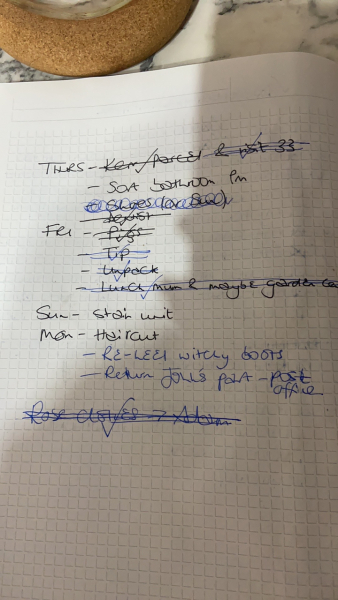 THURS - Kem parcel & visit 33
- Sort bathroom pm
FRI - Pigs
- Tip
- Unpack
- Lunch mum & maybe garden
Sun - Stair unit
Mon - Haircut
- RE-HEEL witchy boots
- Return Joule's part - post
office
Rose clothes →